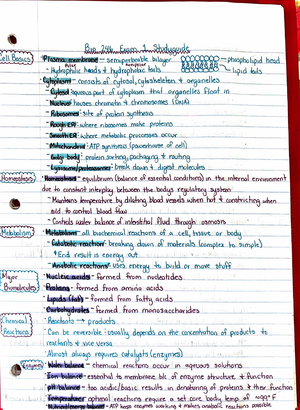 Bio 246 Exam 1 Studyguide
Cell Basics
Plasma membrane - semipermeable bilayer
phospholipid head
- Hydrophilic heads & hydrophobic tails
lipid tails
Cytoplasm - consists of cytosol, cytoskeleton & organelles
Cytosol: aqueous part of cytoplasm that organelles float in
Nucleus: houses chromatin & chromosomes (DNA)
Ribosomes: site of protein synthesis
Rough ER: where ribosomes make proteins
Smooth ER: where metabolic processes occur
Mitochondria: ATP synthesis (powerhouse of cell)
Golgi body: protein sorting, packaging & routing
Lysosomes/proteasomes: break down & digest molecules
Homeostasis
Homeostasis - equilibrium (balance of essential conditions) in the internal environment
due to constant interplay between the body's regulatory system
- Maintains temperature by dilating blood vessels when hot & constricting when
cold to control blood flow
- Controls water balance of interstitial fluid through osmosis
Metabolism
Metabolism - all biochemical reactions of a cell, tissue or body
Catabolic reaction - breaking down of materials (complex to simple)
End result is energy out
Anabolic reactions - uses energy to build or move stuff
Major
Biomolecules
Nucleic acids - formed from nucleotides
Proteins - formed from amino acids
Lipids (fats) - formed from fatty acids
Carbohydrates - formed from monosaccharides
Chemical
Reactions
Reactants → products
- Can be reversible - usually depends on the concentration of products to
reactants & vice versa
- Almost always requires catalysts (enzymes)
Enzymes
Water balance - chemical reactions occur in aqueous solutions
Ion balance - essential to membrane bk of enzyme structure & function
pH balance - too acidic/basic results in denaturing of proteins & their function
Temperature - optimal reactions require a set core body temp of ~99°F
Nutrient/energy balance - ATP keeps enzymes working & makes metabolic reactions possible